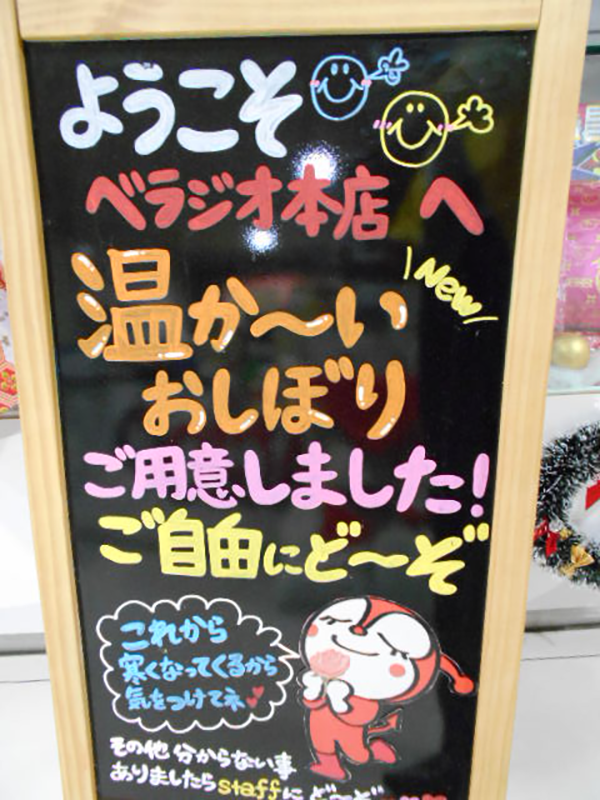 ようこそ
ベラジオ本店へ
New
温か〜い
おしぼり
ご用意しました!
ご自由にど〜ぞ
これから
寒くなってくるから
気をつけてネ
その他分からない事
ありましたらstaffに ど〜ぞ